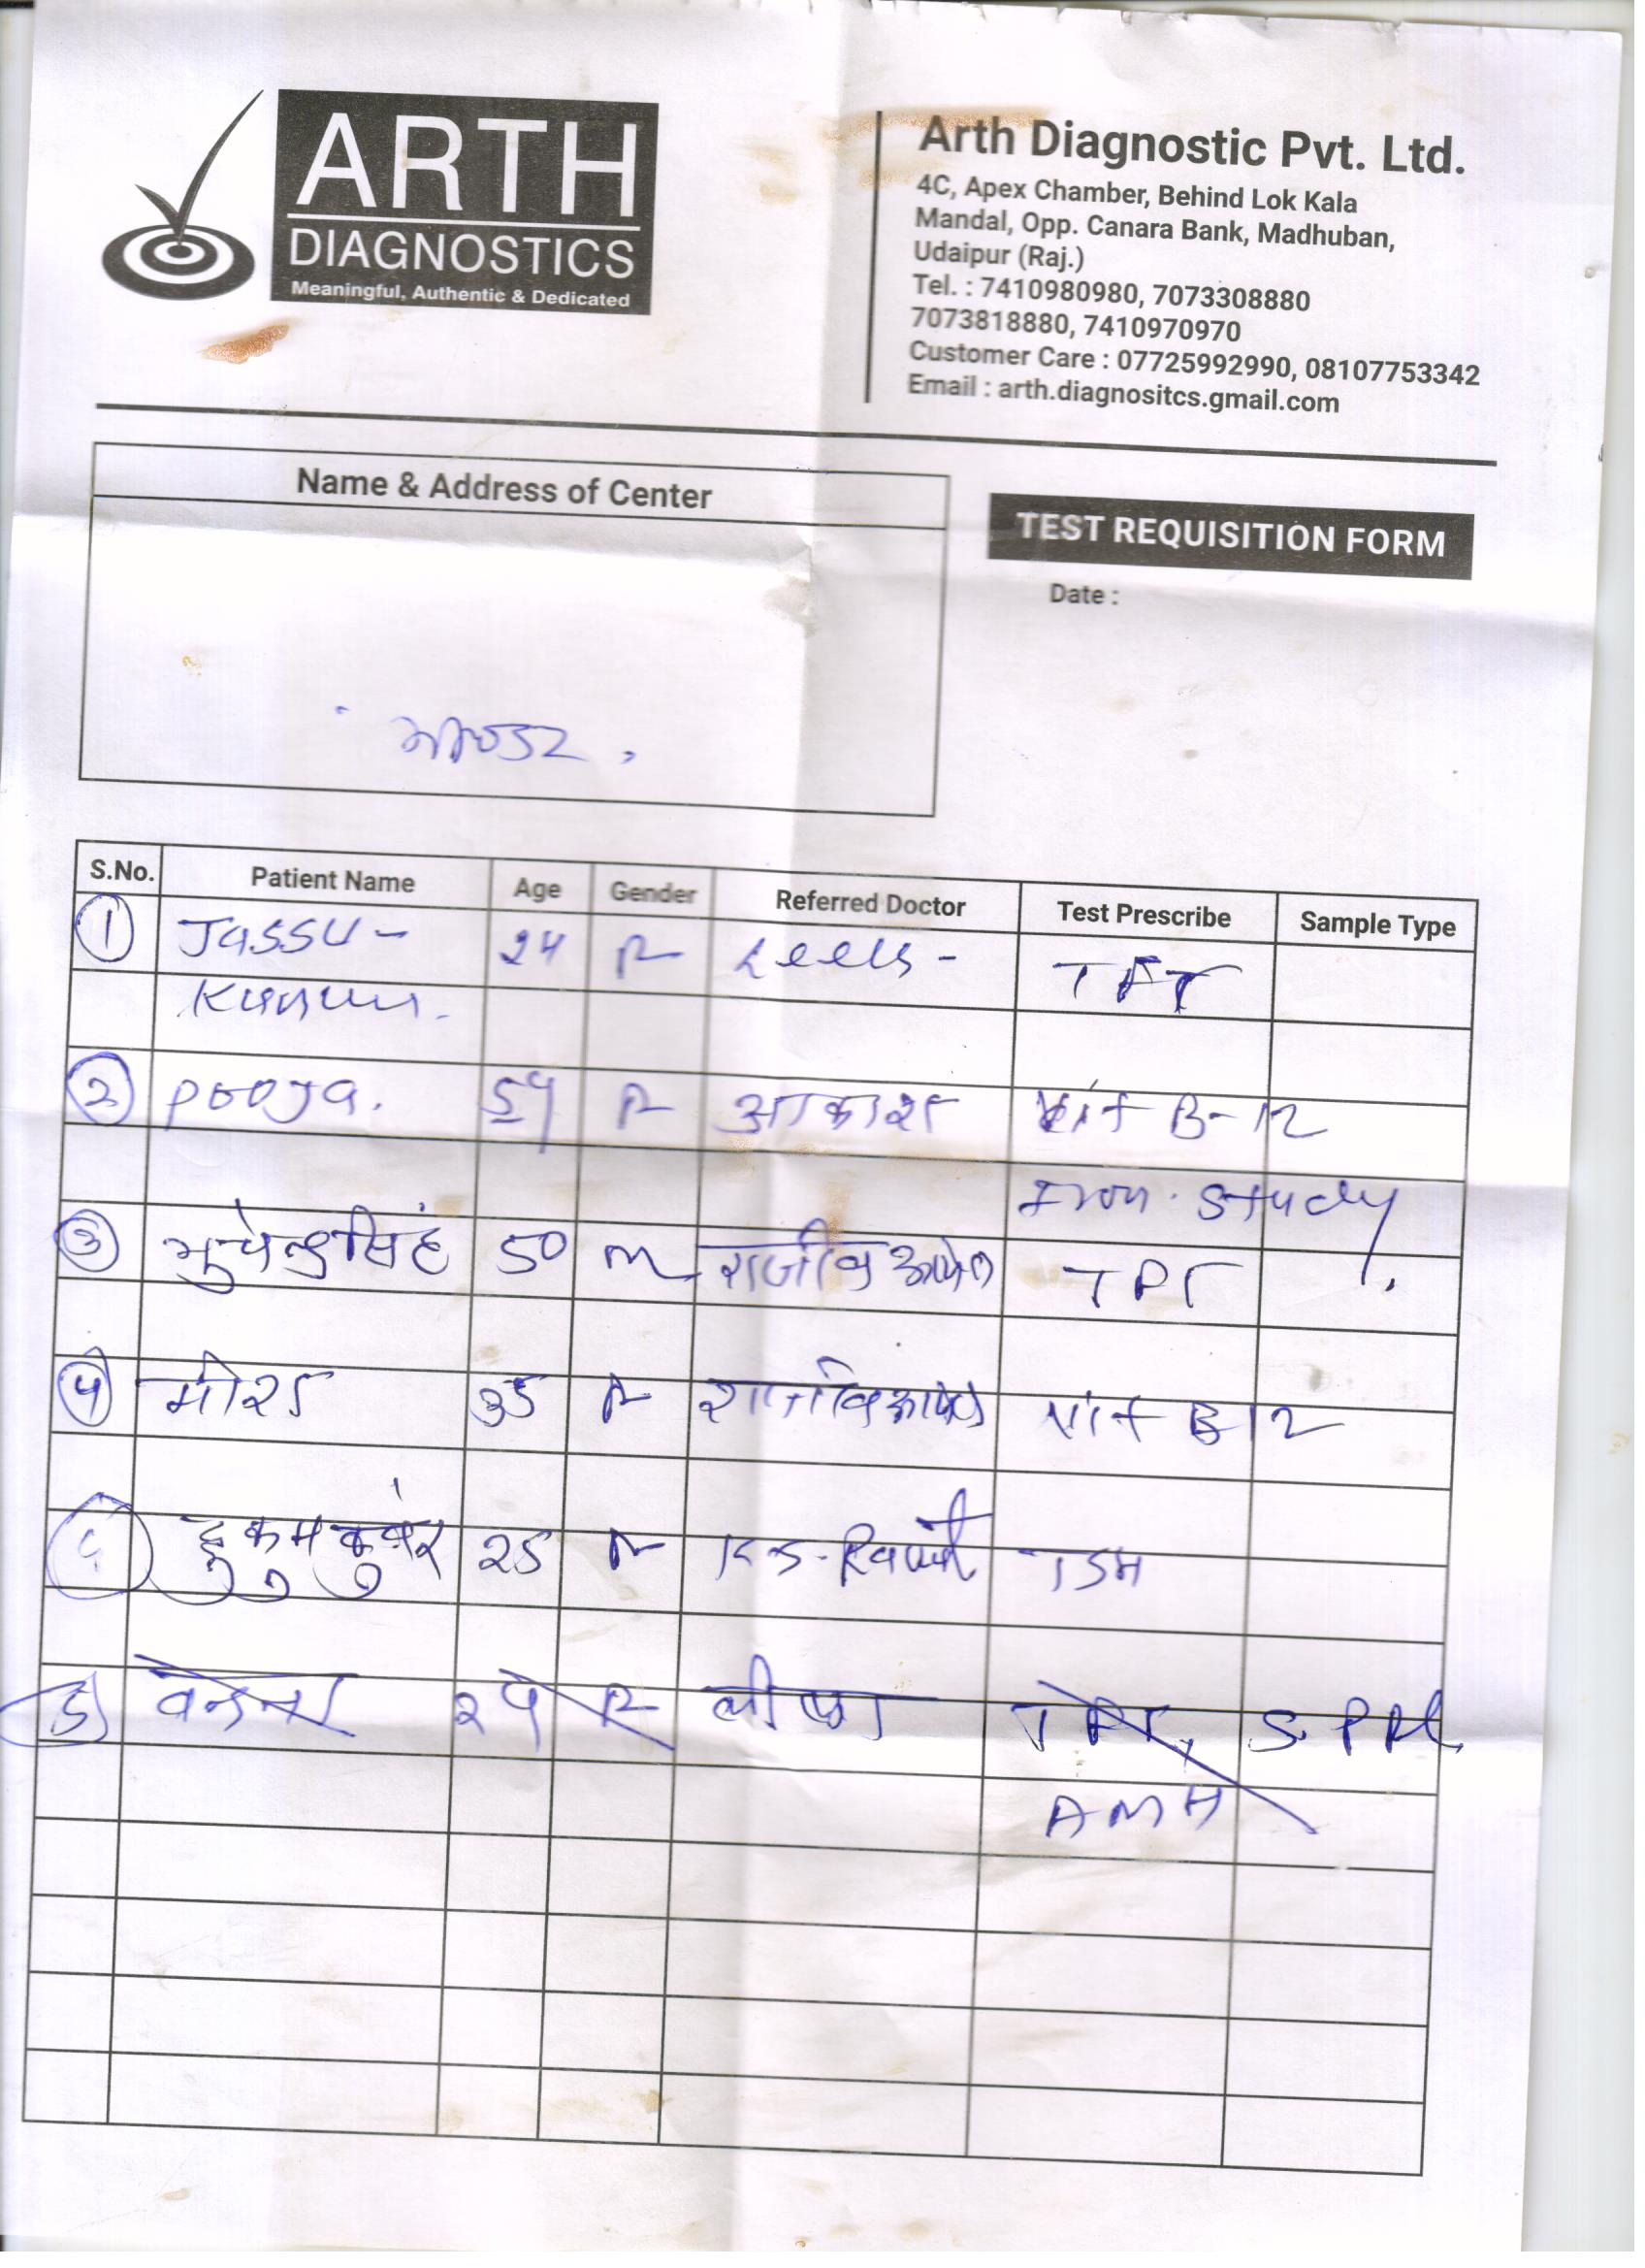 ARTH
DIAGNOSTICS
Meaningful, Authentic & Dedicated
Arth Diagnostic Pvt. Ltd.
4C, Apex Chamber, Behind Lok Kala
Mandal, Opp. Canara Bank, Madhuban,
Udaipur (Raj.)
Tel. : 7410980980, 7073308880
7073818880, 7410970970
Customer Care : 07725992990, 08107753342
Email : arth.diagnositcs.gmail.com
Name & Address of Center
TEST REQUISITION FORM
Date :
S.No. Patient Name Age Gender Referred Doctor Test Prescribe Sample Type
1 Jassu - 24 F TFT
2 Pooja. F आकाश Vit B-12
Iron Study
3 भुपेन्द्रसिंह 50 m राजीव TFT
4 मीरा 35 F राजीव Vit B12
5 हुकम कुवंर 25 F K.S. TSH
6 F लीला TFT, S. PRL
AMH